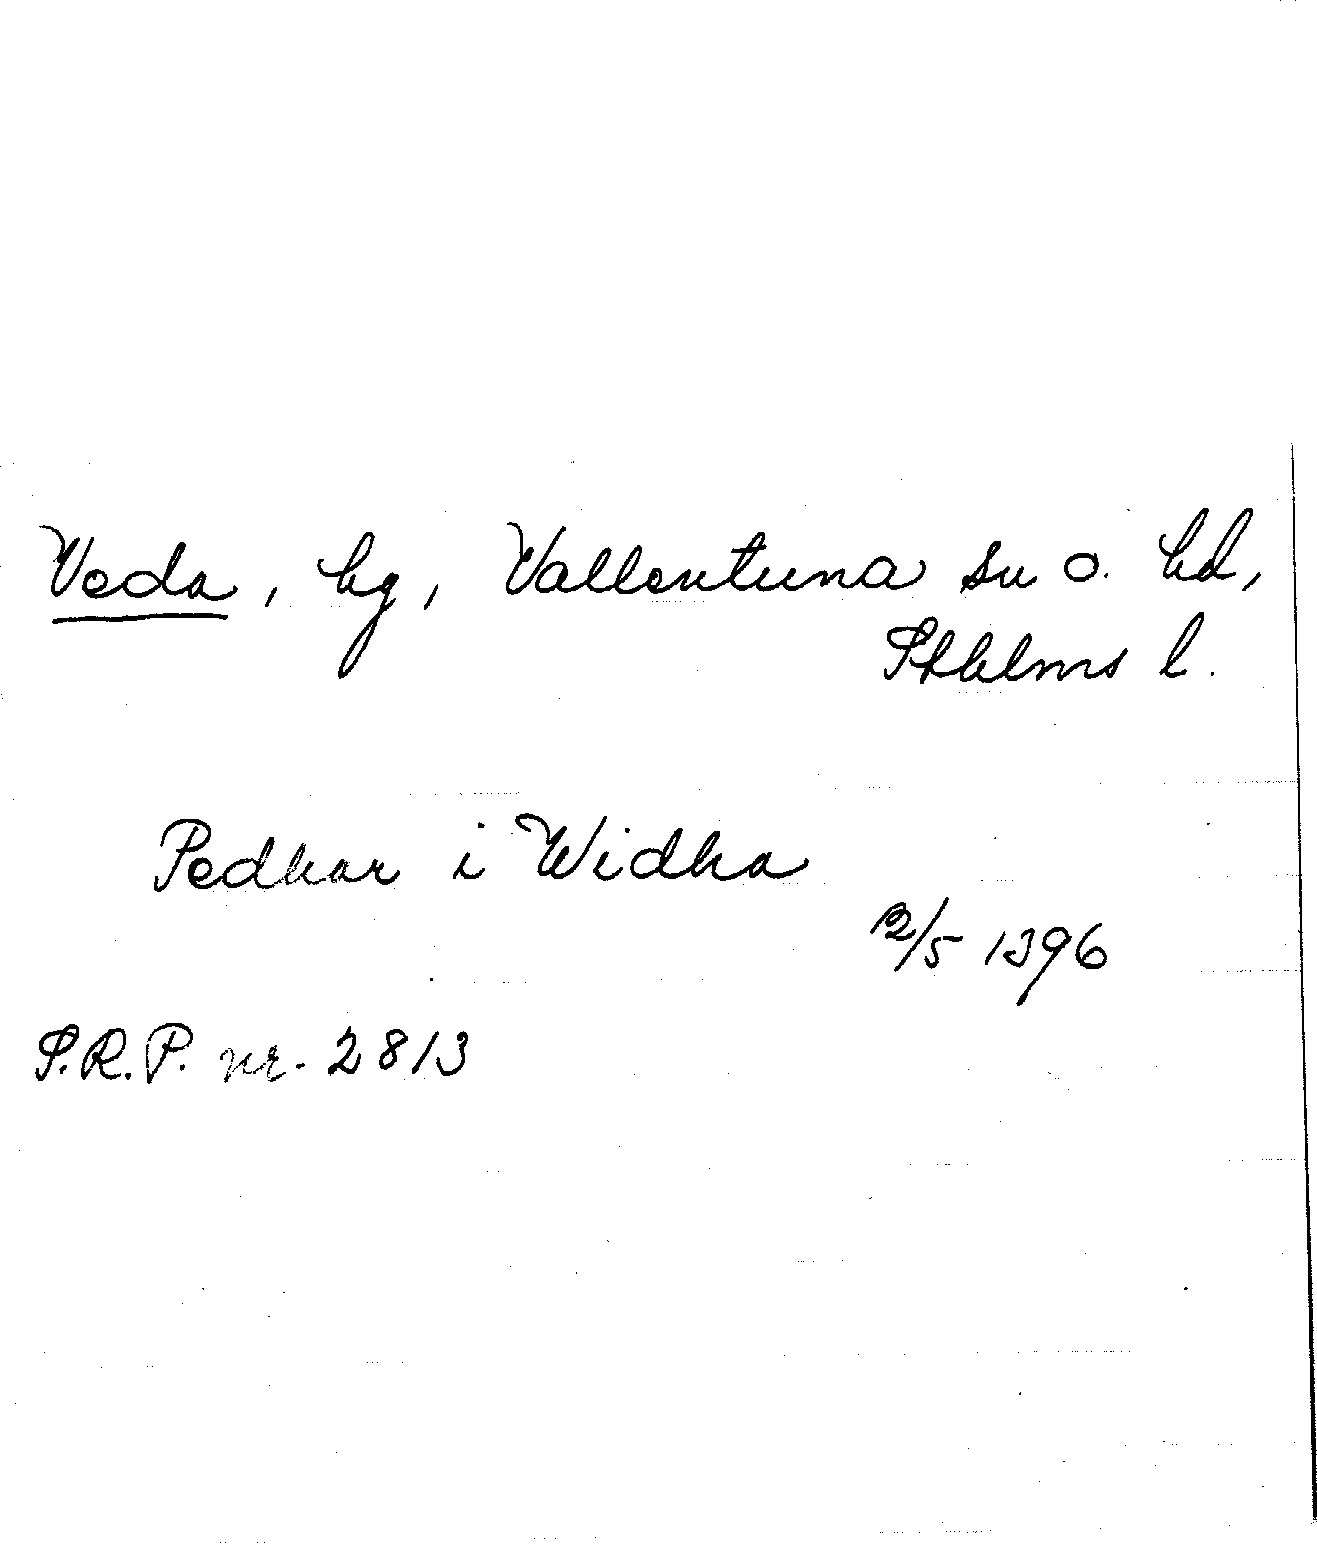 Veda, by, Vallentuna sn o. hd,
Sthlms l.
Pedhar i Widha
12/5 1396
S.R.P. nr. 2813